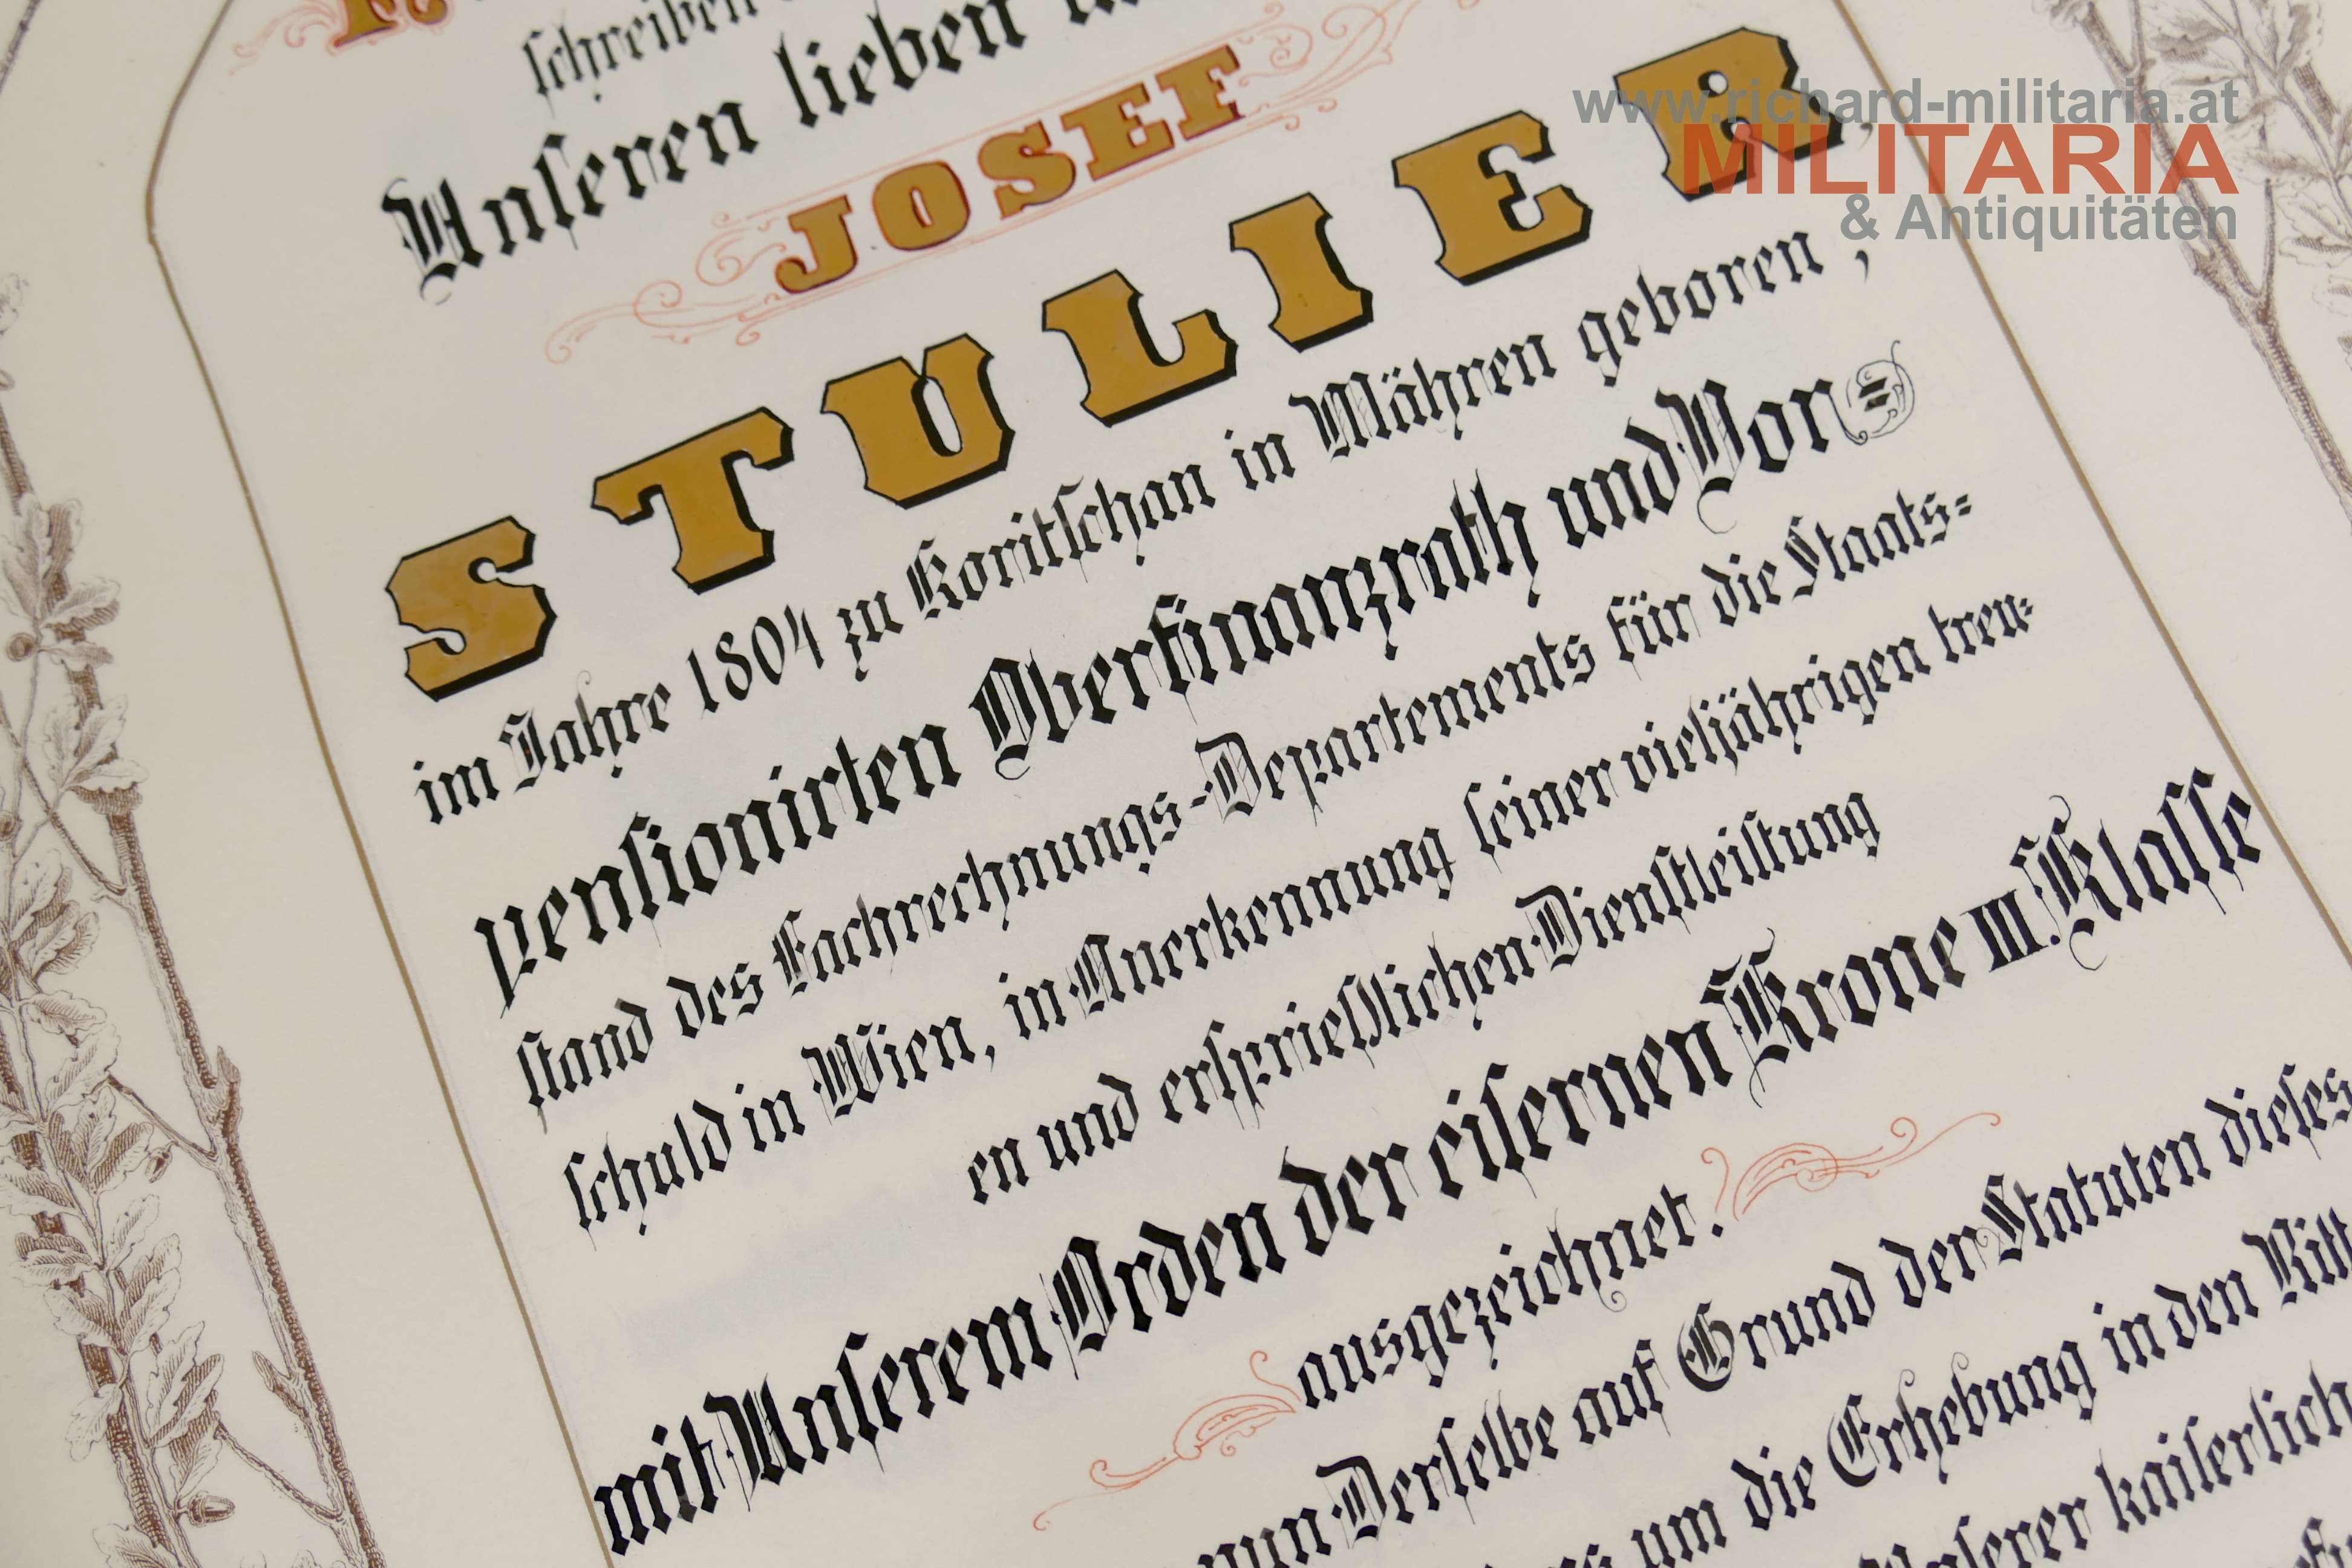 schreiben
Unseren lieben
JOSEF
STULIER,
im Jahre 1804 zu Koritschan in Mähren geboren,
pensionirten Oberfinanzrath und Vor=
stand des Fachrechnungs-Departements für die Staats=
schuld in Wien, in Anerkennung seiner vieljährigen treu=
en und ersprießlichen Dienstleistung
mit Unserem Orden der eisernen Krone III. Klasse
ausgezeichnet.
nun Derselbe auf Grund der Statuten dieses
um die Erhebung in den Ritt
Unserer kaiserlich
www.richard-militaria.at
MILITARIA
& Antiquitäten